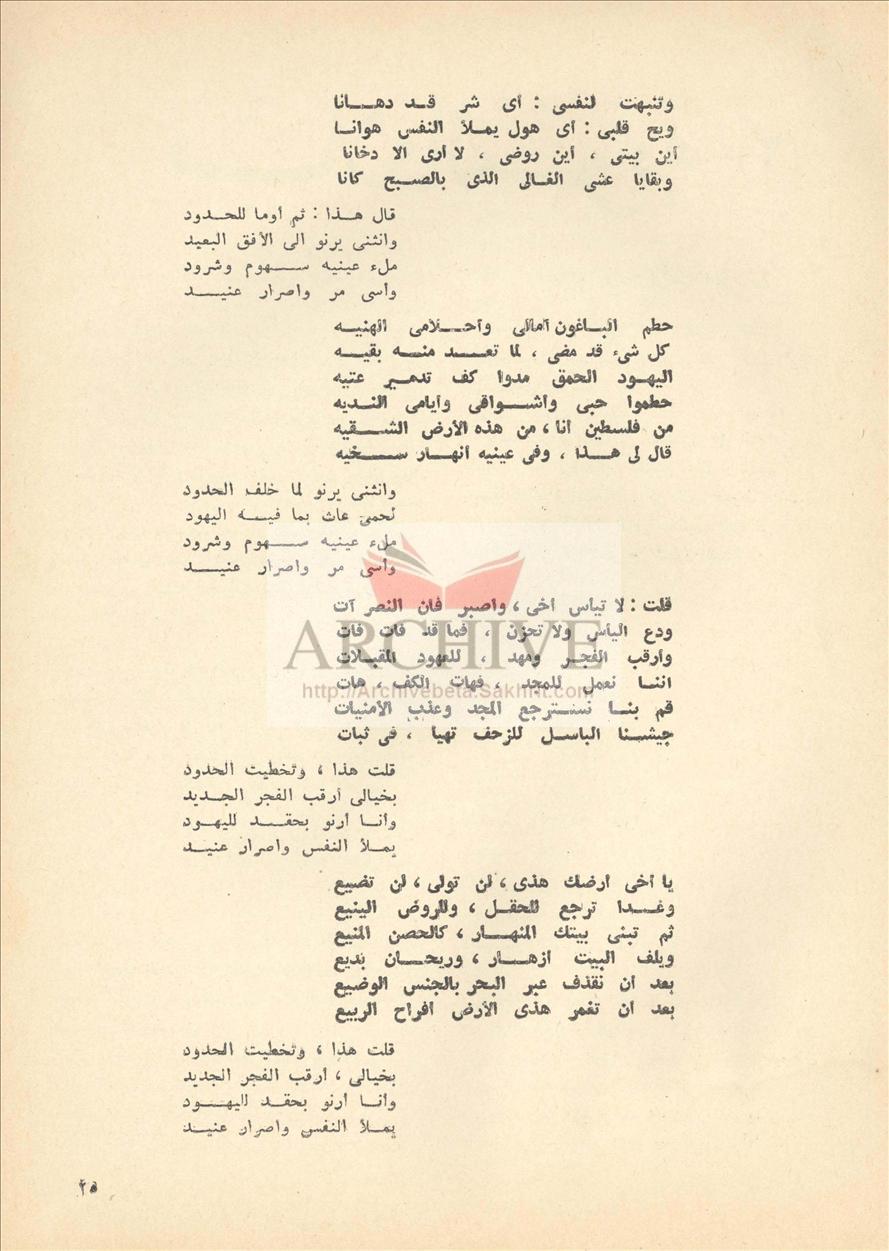 وتنبهت لنفسى : أى شر قد دهانا
ويح قلبى : أى هول يملأ النفس هوانا
أين بيتى ، أين روضى ، لا أرى الا دخانا
وبقايا عشى الغالى الذى بالصبح كانا
قال هذا : ثم أوما للحدود
وانثنى يرنو الى الأفق البعيد
ملء عينيه سهوم وشرود
وأسى مر واصرار عنيد
حطم الباغون آمالى وأحلامى الهنيه
كل شىء قد مضى ، لما تعد منه بقيه
اليهود الحمق مدوا كف تدمير عتيه
حطموا حبى وأشواقى وأيامى النديه
من فلسطين أنا ، من هذه الأرض الشقيه
قال لى هذا ، وفى عينيه أنهار سخيه
وانثنى يرنو لما خلف الحدود
لحمى عاث بما فيه اليهود
ملء عينيه سهوم وشرود
وأسى مر واصرار عنيد
قلت : لا تيأس أخى ، واصبر فان النصر آت
ودع اليأس ولا تحزن ، فما قد فات فات
وأرقب الفجر ومهد ، للعهود المقبلات
اننا نعمل للمجد ، فهات الكف ، هات
قم بنا نسترجع المجد وعذب الأمنيات
جيشنا الباسل للزحف تهيا ، فى ثبات
قلت هذا ، وتخطيت الحدود
بخيالى أرقب الفجر الجديد
وأنا أرنو بحقد لليهود
يملأ النفس واصرار عنيد
يا أخى أرضك هذى ، لن تولى ، لن تضيع
وغدا ترجع للحقل ، وللروض الينيع
ثم تبنى بيتك المنهار ، كالحصن المنيع
ويلف البيت أزهار ، وريحان بديع
بعد أن نقذف عبر البحر بالجنس الوضيع
بعد أن تغمر هذى الأرض أفراح الربيع
قلت هذا ، وتخطيت الحدود
بخيالى ، أرقب الفجر الجديد
وأنا أرنو بحقد لليهود
يملأ النفس واصرار عنيد
ARCHIVE
http://Archivebeta.Sakhrit.com
٢٥